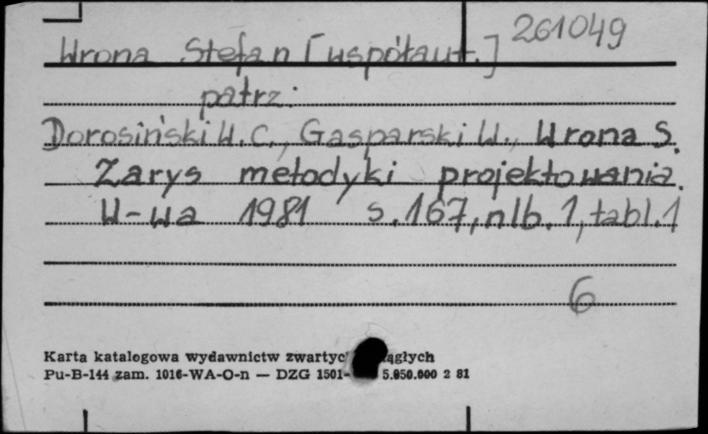 Wrona Stefan [współaut.] 261049
patrz:
Dorosiński W.C., Gasparski W., Wrona S.
Zarys metodyki projektowania.
W-wa 1981 s.167, nlb.1, tabl.1
6
Karta katalogowa wydawnictw
Pu-B-144 zam. 1016-WA-O-n — DZG 1501- 5.050.000 2 81